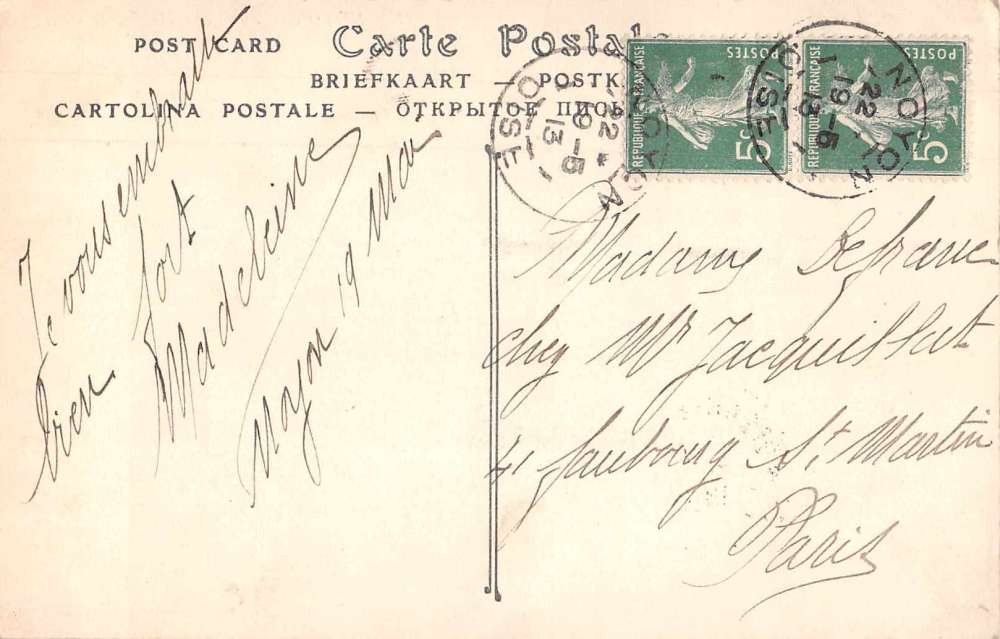 POST CARD Carte Postale
BRIEFKAART — POSTK
CARTOLINA POSTALE — ОТКРЫТОЕ ПИСЬ
Je vous embrasse
bien fort
Madeleine
Noyon 19 Mai
REPUBLIQUE FRANÇAISE
POSTES
5c
REPUBLIQUE FRANÇAISE
POSTES
5c
NOYON
22
19-5
13
OISE
NOYON
22
19-5
13
OISE
Madame Defrance
chez Mr
faubourg St Martin
Paris